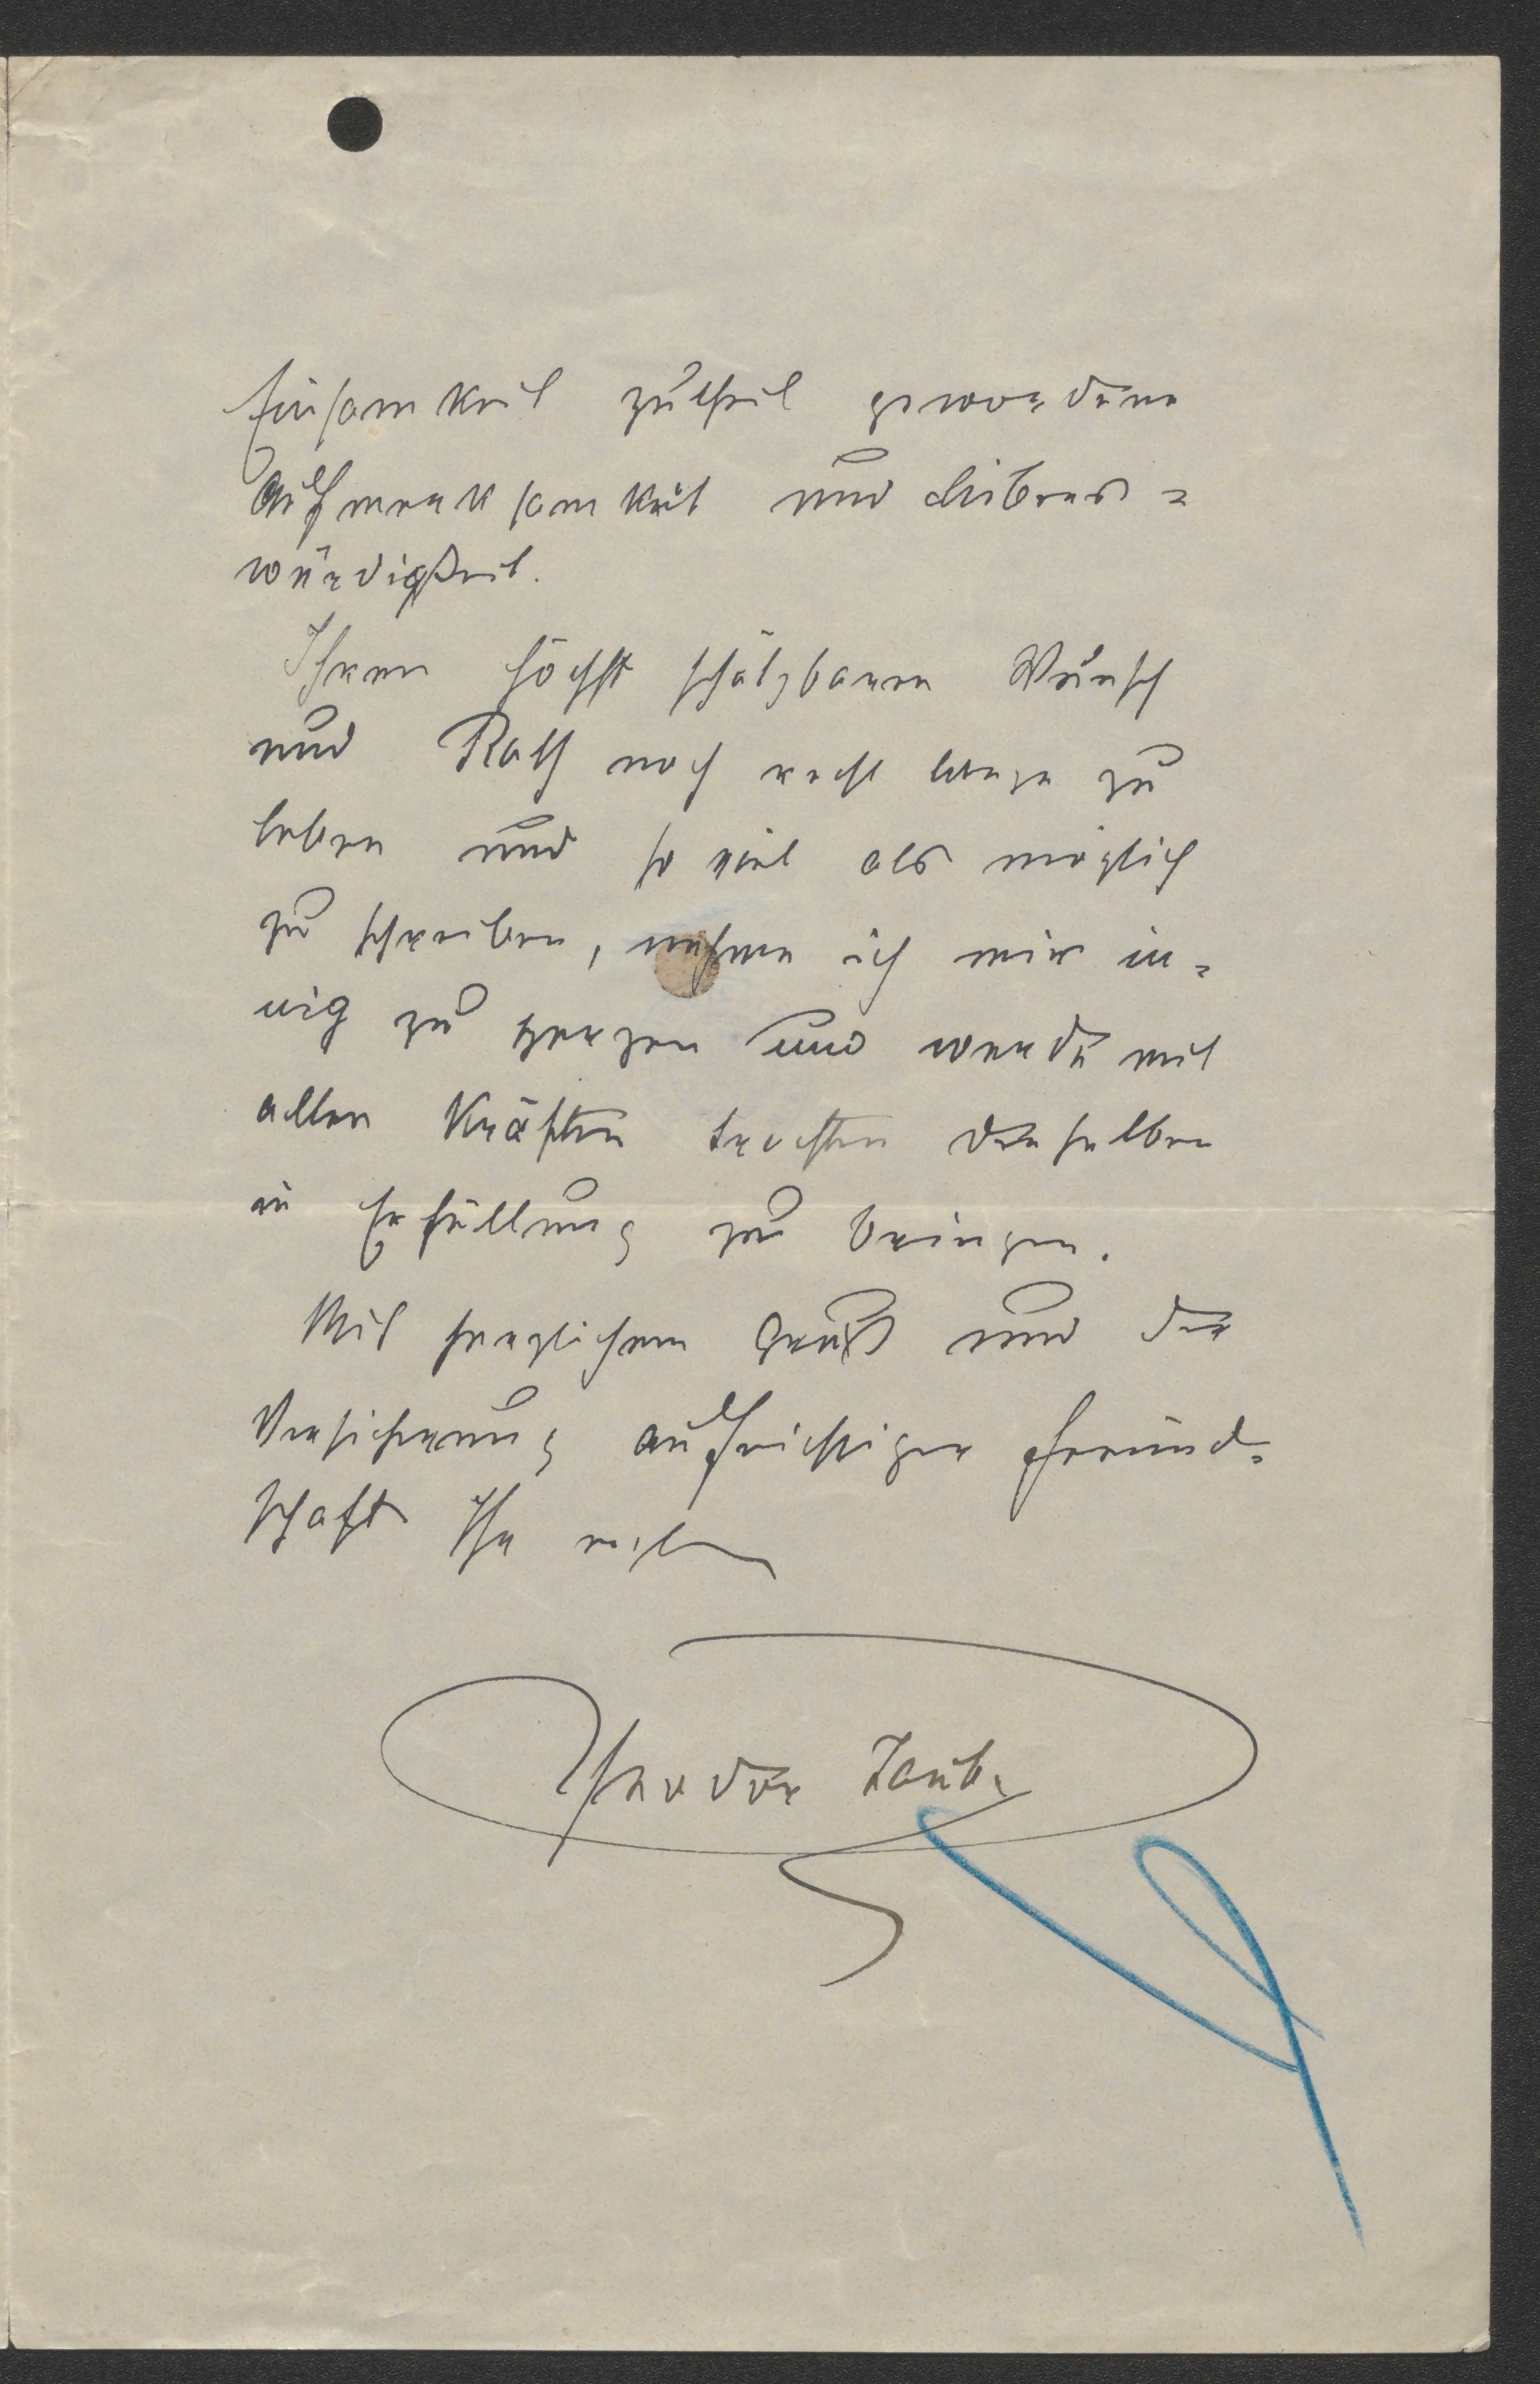 Einsamkeit zutheil gewordene
Aufmerksamkeit und Liebens=
würdigkeit.
Ihren höchst schätzbaren Wunsch
und Rath noch recht lange zu
leben und so viel als möglich
zu schreiben, nehme ich mir in=
nig zu Herzen und werde mit
allen Kräften trachten denselben
in Erfüllung zu bringen.
Mit herzlichem Gruß und der
Versicherung aufrichtiger Freund=
schaft Ihr
Theodor Taube